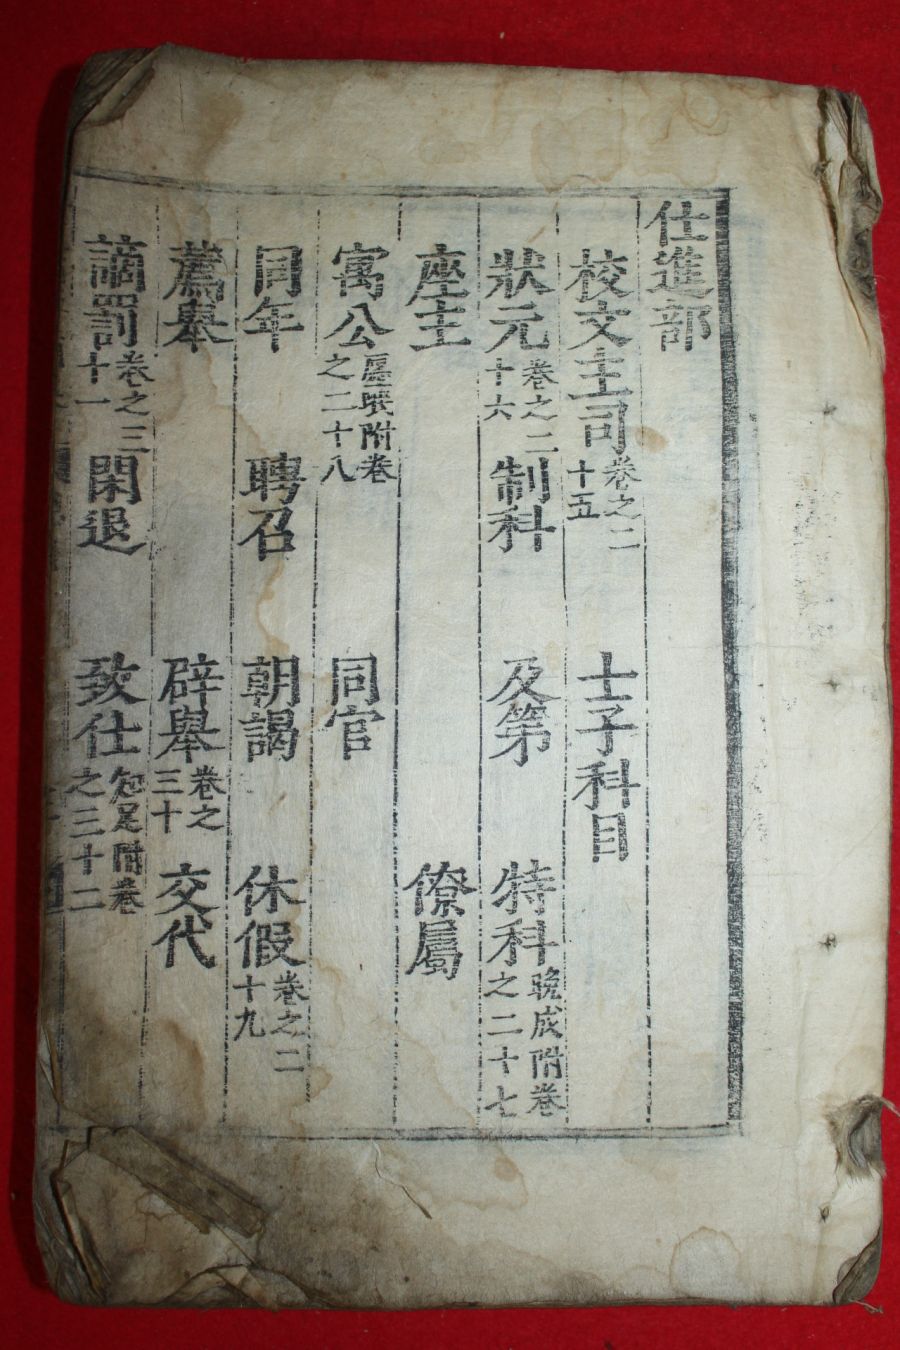 仕進部
校文主司 卷之二十五 士子科目
狀元 卷之二十六 制科 及第 特科 晚成附卷之二十七
座主 僚屬
寓公 屢擧附卷之二十八 同官
同年 聘召 朝謁 休假 卷之二十九
薦擧 辟擧 卷之三十 交代
謫罰 卷之三十一 閑退 致仕 知足附卷之三十二